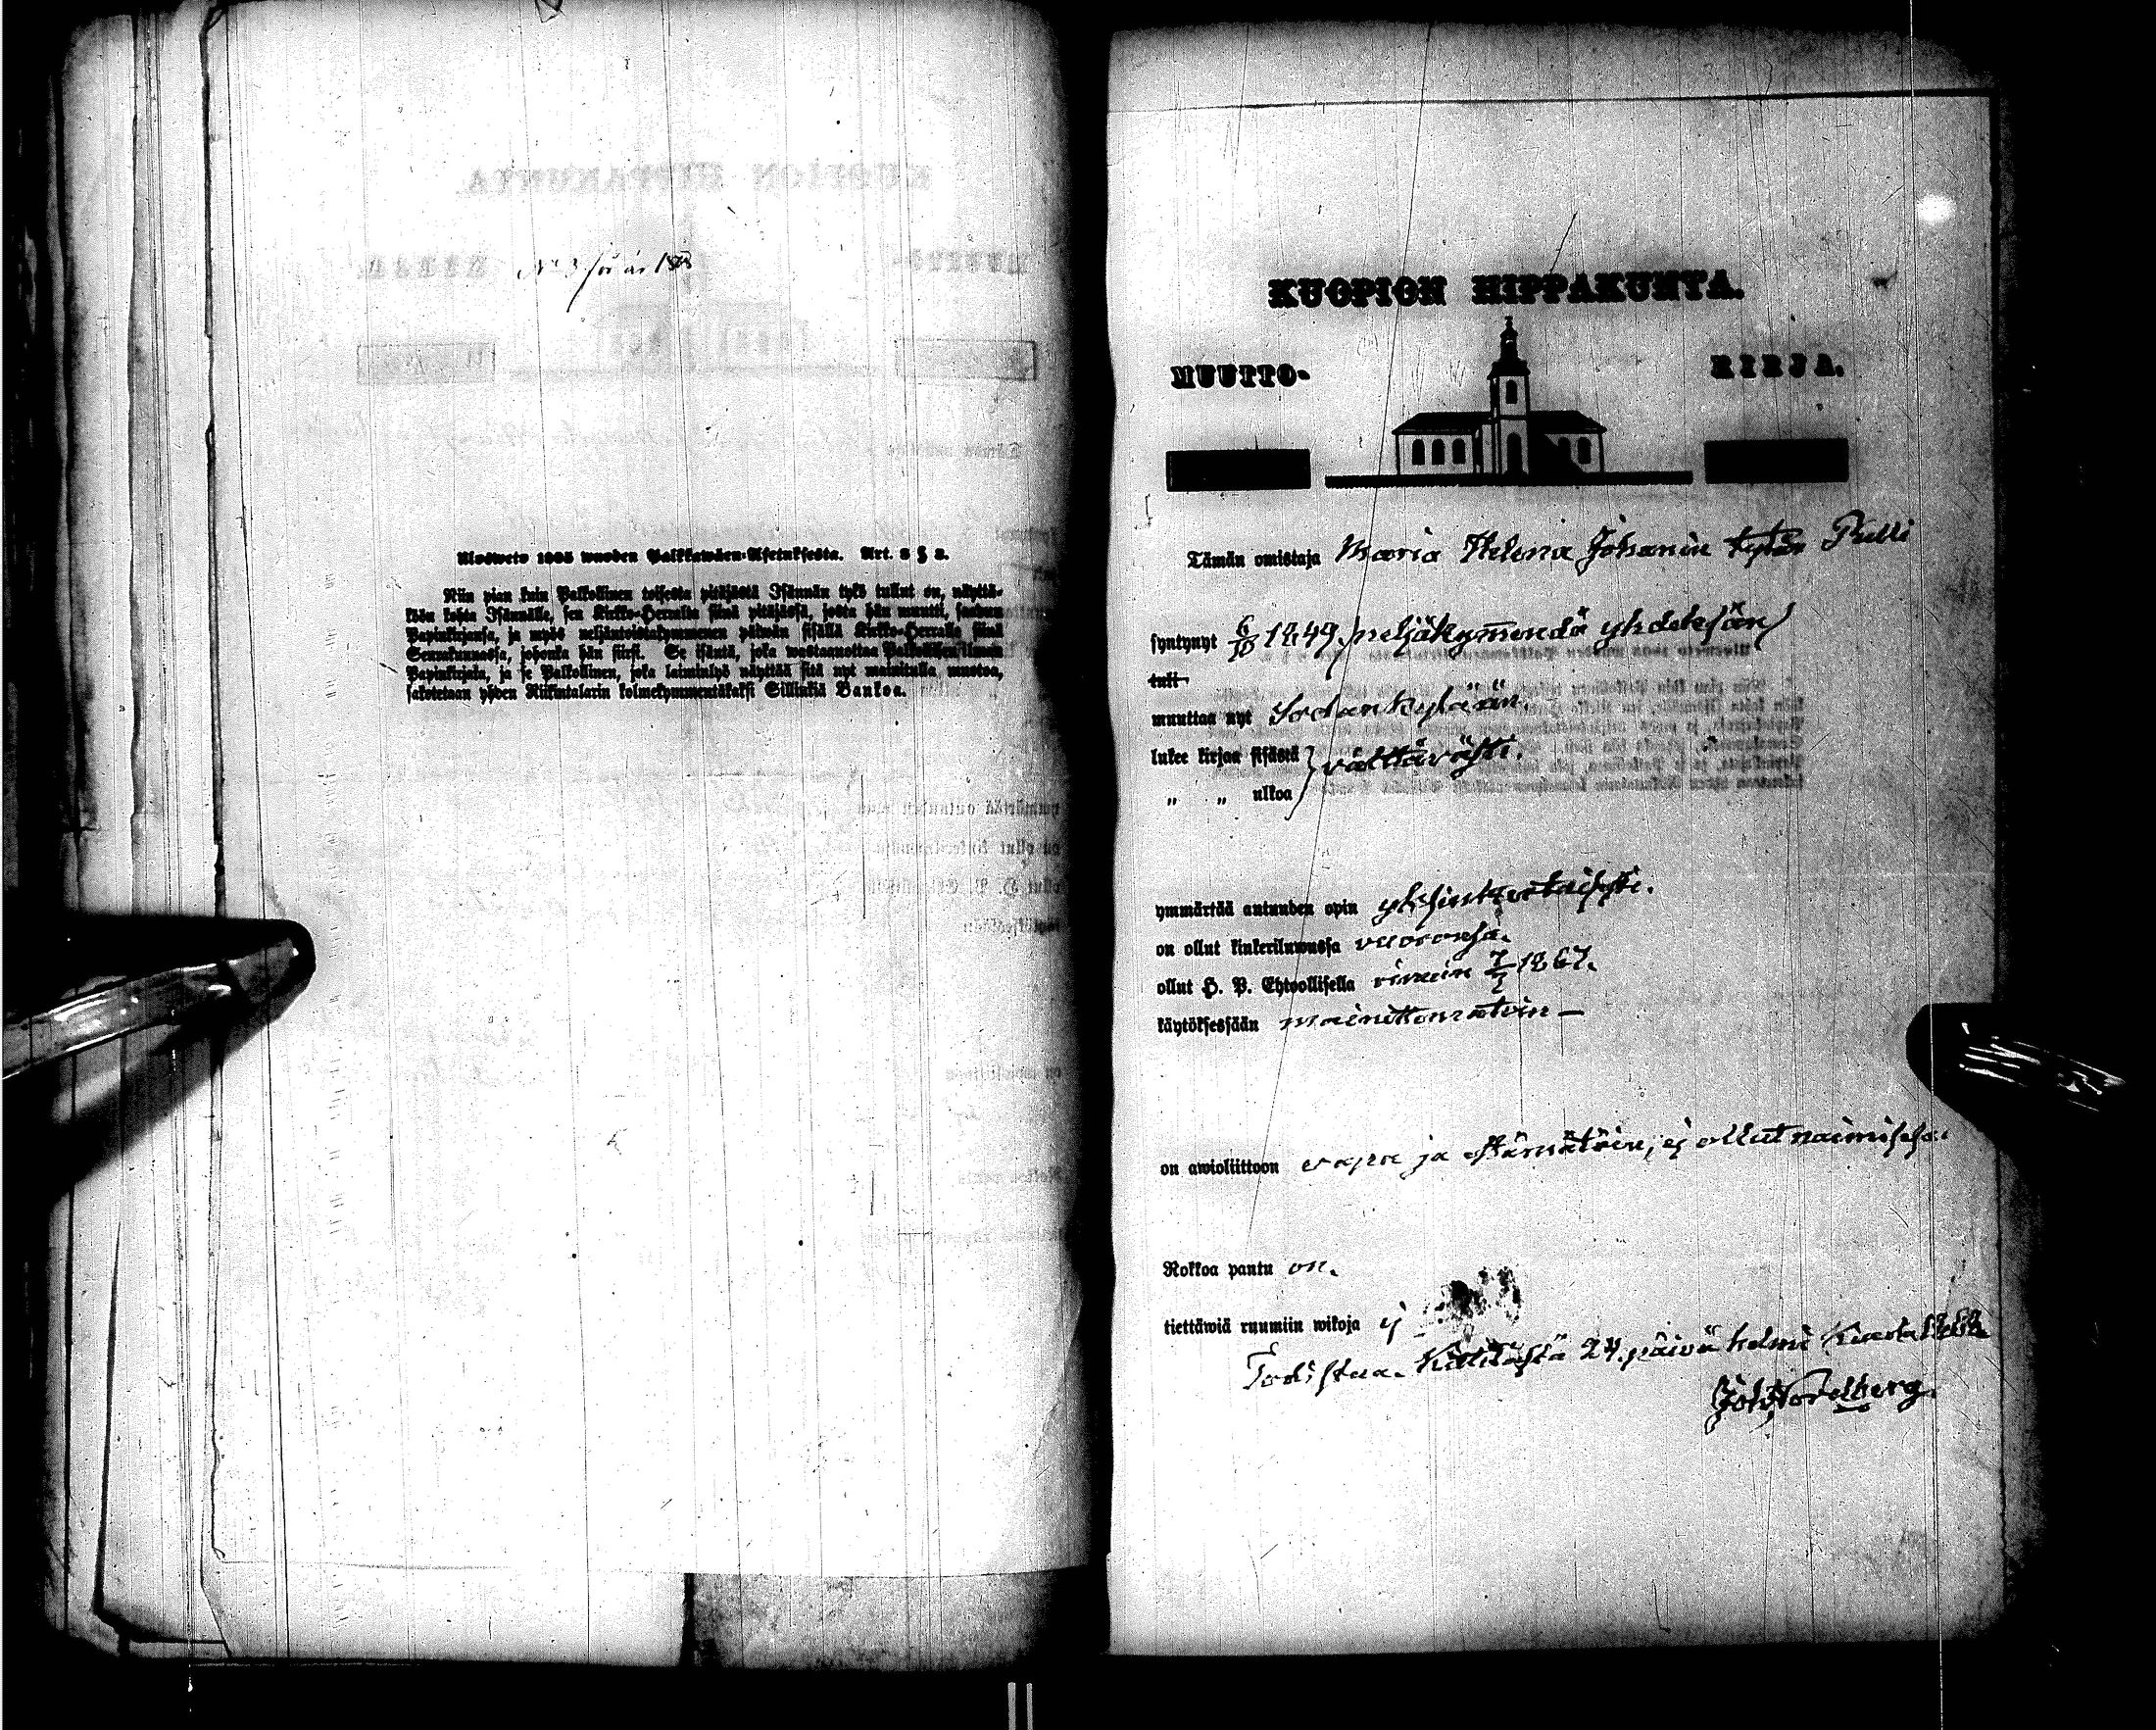 No 3 för år 1868
Ulosweto 1805 wuoden Palkkawäen-Asetuksesta. Art. 3 § 3.
Niin pian kuin Palkollinen toisesta pitäjästä Isännän tykö tullut on, näyttä-
köön kohta Isännälle, sen Kirkko-Herralta siinä pitäjässä, josta hän muutti, saadun
Papinkirjansa, ja myös neljäntoistakymmenen päiwän sisällä Kirkko-Herralle siinä
Seurakunnassa, johonka hän siirsi. Se isäntä, joka wastaanottaa Palkollisen ilman
Papinkirjata, ja se Palkollinen, joka laiminlyö näyttää sitä nyt mainitulla muotoa,
sakotetaan yhden Riikintalarin kolmekymmentäkaksi Sillinkiä Bankoa.
KUOPION HIPPAKUNTA.
MUUTTO- KIRJA.
Tämän omistaja Maria Helena Johanin tytär Pulli
syntynyt 6/10 1849 (neljäkymmendä yhdeksän)
tuli
muuttaa nyt Sodankylään.
lukee kirjan sisästä } välttävästi.
„ „ ulkoa
ymmärtää autuuden opin yksinkertaisesti.
on ollut kinkeriluwussa vuoronsa.
ollut H. P. Ehtoollisella viimein 7/7 1867.
käytöksessään mainittomatoin –
on awioliittoon vapa ja estämätöin, ej ollut naimisesa.
Rokkoa pantu on.
tiettäwiä ruumiin wikoja ej
Todistaa. Kittilästä 24. päivä helmi kuusta 1868.
Joh. Nordberg.